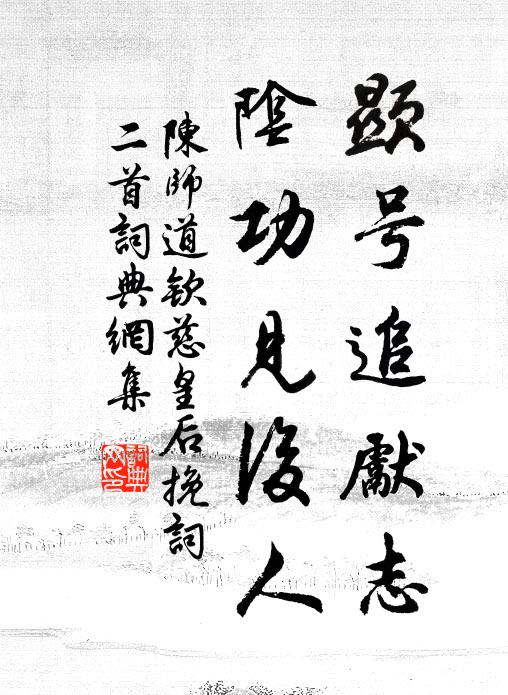 顯号追獻志
陰功見後人
陳師道欽慈皇后挽詞
二首詞典網集
詞典
网印